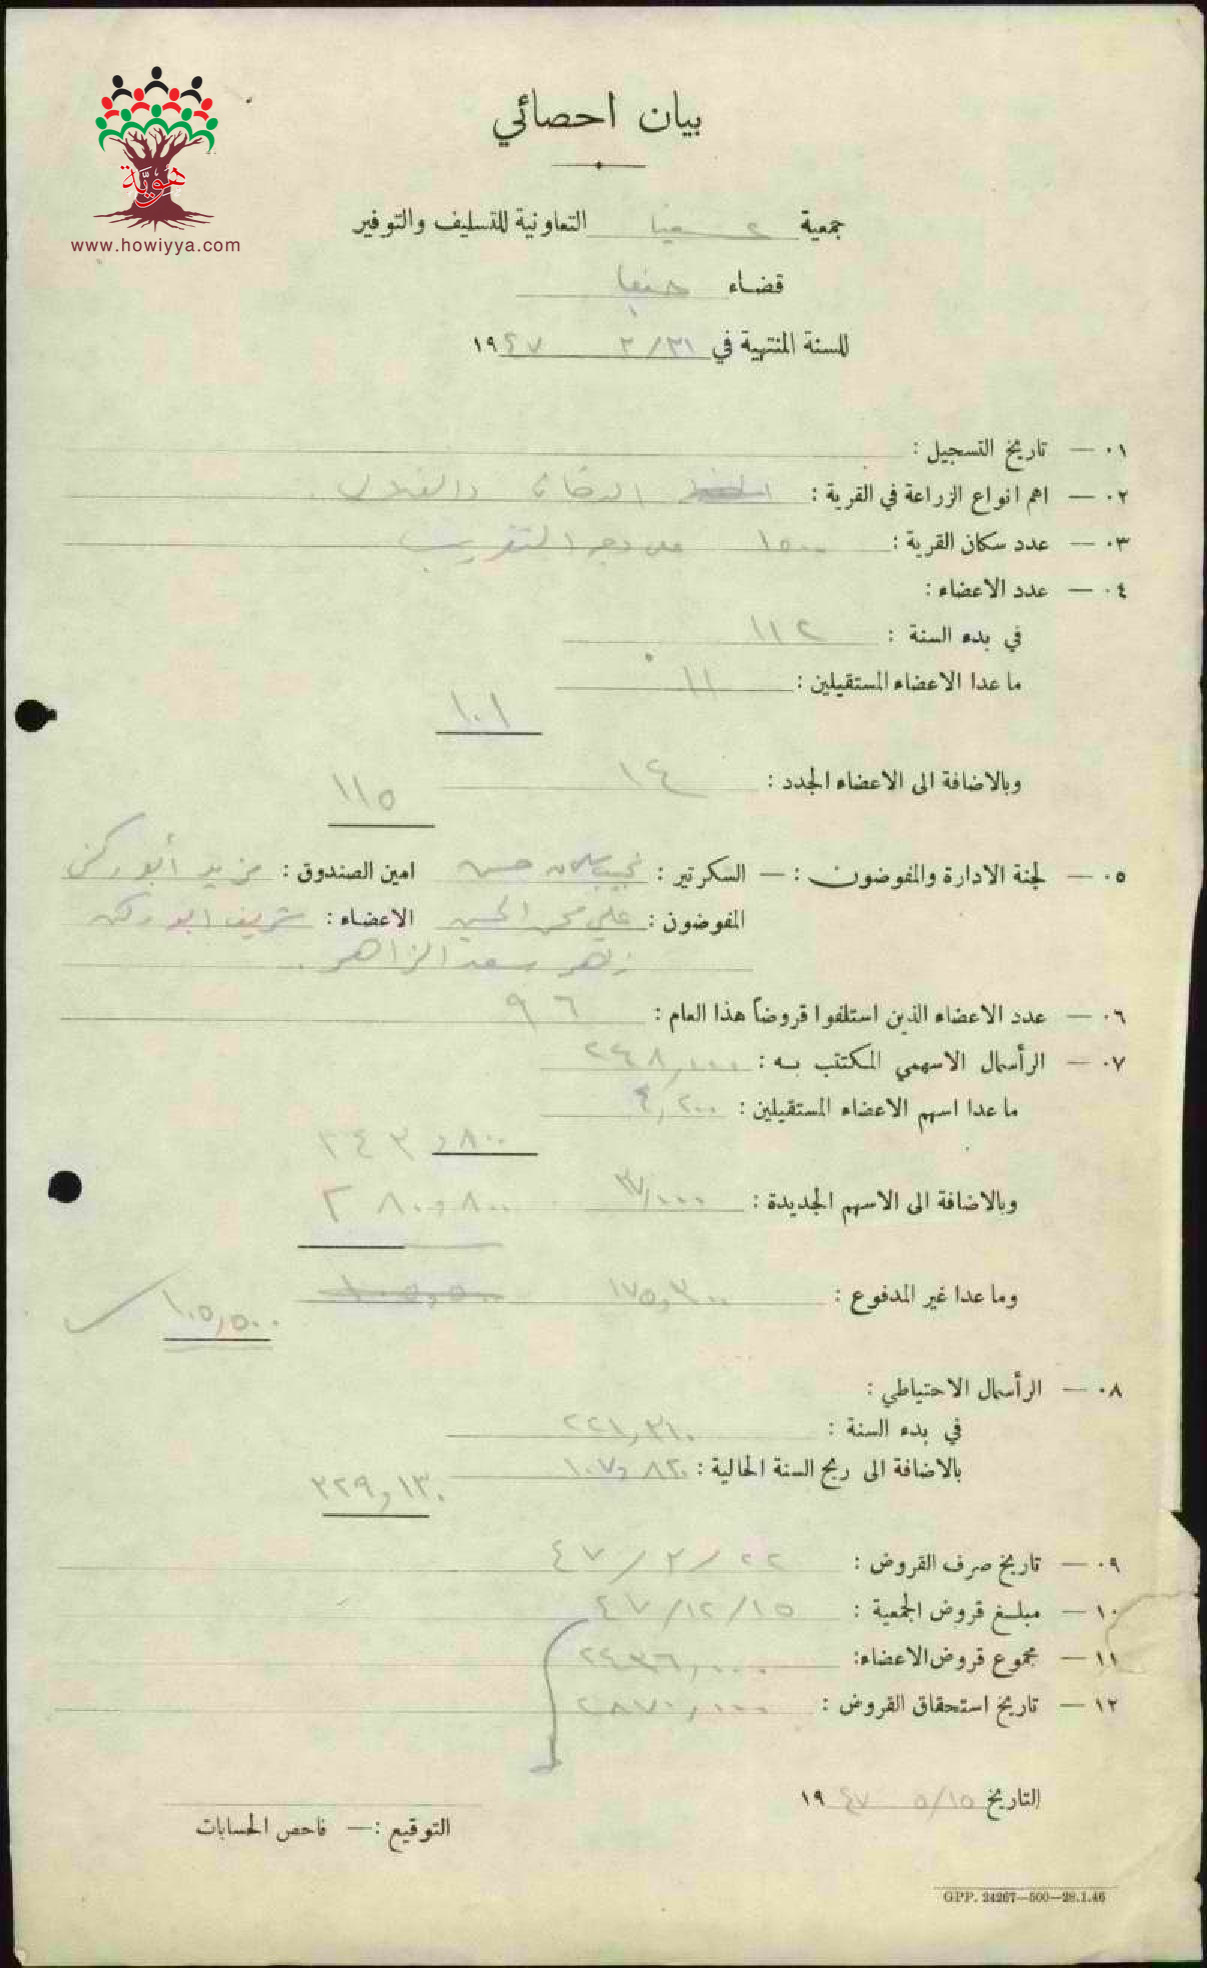 هوية
www.howiyya.com
بيان احصائي
جمعية عسفيا التعاونية للتسليف والتوفير
قضاء حيفا
للسنة المنتهية في ٣١/٣ ١٩٤٧
٠١ — تاريخ التسجيل :
٠٢ — اهم انواع الزراعة في القرية : الدخان والغلال .
٠٣ — عدد سكان القرية : ١٥٠٠ على وجه التقريب
٠٤ — عدد الاعضاء :
في بدء السنة : ١١٢
ما عدا الاعضاء المستقيلين : ١١
١٠١
وبالاضافة الى الاعضاء الجدد : ١٤
١١٥
٠٥ — لجنة الادارة والمفوضون : — السكرتير : نجيب سلمان حسن امين الصندوق : مزيد أبو ركن
المفوضون : علي محمد الحسين الاعضاء : شريف ابو ركن
زاهر سعد الزاهر .
٠٦ — عدد الاعضاء الذين استلفوا قروضاً هذا العام : ٩٦
٠٧ — الرأسمال الاسهمي المكتتب به : ٢٤٨,٠٠٠
ما عدا اسهم الاعضاء المستقيلين : ٤,٢٠٠
٢٤٣,٨٠٠
وبالاضافة الى الاسهم الجديدة : ٣٧,٠٠٠ ٢٨٠,٨٠٠
وما عدا غير المدفوع : ١٧٥,٣٠٠ ١٠٥,٥٠٠
١٠٥,٥٠٠
٠٨ — الرأسمال الاحتياطي :
في بدء السنة : ٢٢١,٣١٠
بالاضافة الى ربح السنة الحالية : ١٠٧,٨٢٠
٣٢٩,١٣٠
٠٩ — تاريخ صرف القروض : ٢٢/٢/٤٧
١٠ — مبلغ قروض الجمعية : ١٥/١٢/٤٧
١١ — مجموع قروض الاعضاء: ٢٤٣٦,٠٠٠
١٢ — تاريخ استحقاق القروض : ٢٨٧٠,١٠٠
التاريخ ١٥/٥ ١٩٤٧
التوقيع : — فاحص الحسابات
GPP. 24267—500—28.1.46